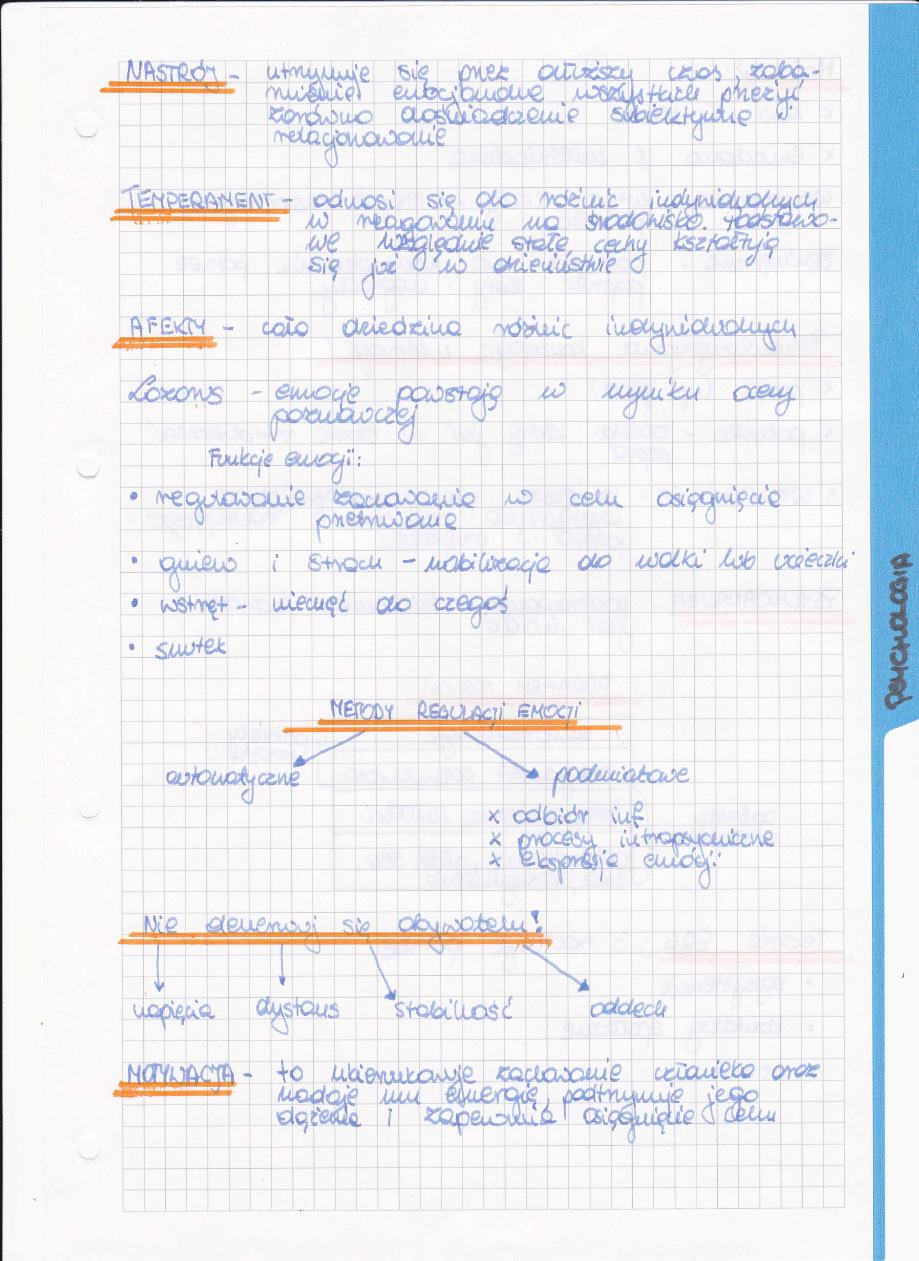 NASTRÓJ - utrzymuje się przez dłuższy czos, zaba-
rwienie emocjonalne wszystkich przeżyć
zarówno doświadczenie subiektywne i
relacjonowanie
TEMPERAMENT - odnosi się do różnic indywidualnych
w reagowaniu na środowisko. Podstawo-
we względnie stałe cechy kształtują
się już w dzieciństwie
AFEKTY - cała dziedzina różnic indywidualnych
Lazarus - emocje powstają w wyniku oceny
poznawczej
Funkcje emocji:
• regulowanie zachowania w celu osiągnięcia
przetrwania
• gniew i strach - mobilizacja do walki lub ucieczki
• wstręt - niechęć do czegoś
• smutek
METODY REGULACJI EMOCJI
automatyczne podmiotowe
x odbiór inf.
x procesy intrapsychiczne
x ekspresja emocji
Nie denerwuj się obywatelu!
napięcia dystans stabilność oddech
MOTYWACJA - to ukierunkowuje zachowanie człowieka oraz
nadaje mu energię, podtrzymuje jego
dążenia i zapewnia osiągnięcie celu
PSYCHOLOGIA